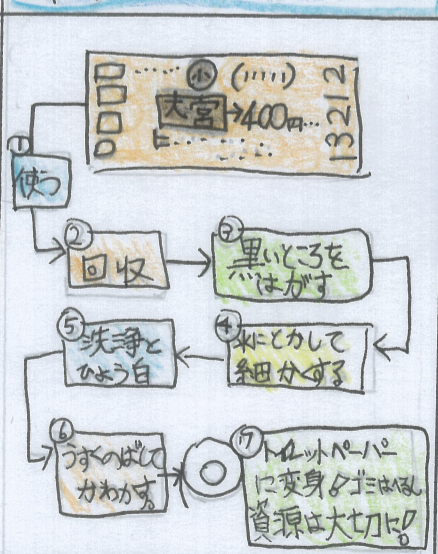 小
大宮→400円…
13212
①
使う
②
回収
③
黒いところを
はがす
④
水にとかして
細かくする
⑤
洗浄と
ひょう白
⑥
うすくのばして
かわかす。
⑦
トイレットペーパー
に変身!ゴミはへるし
資源は大切に!